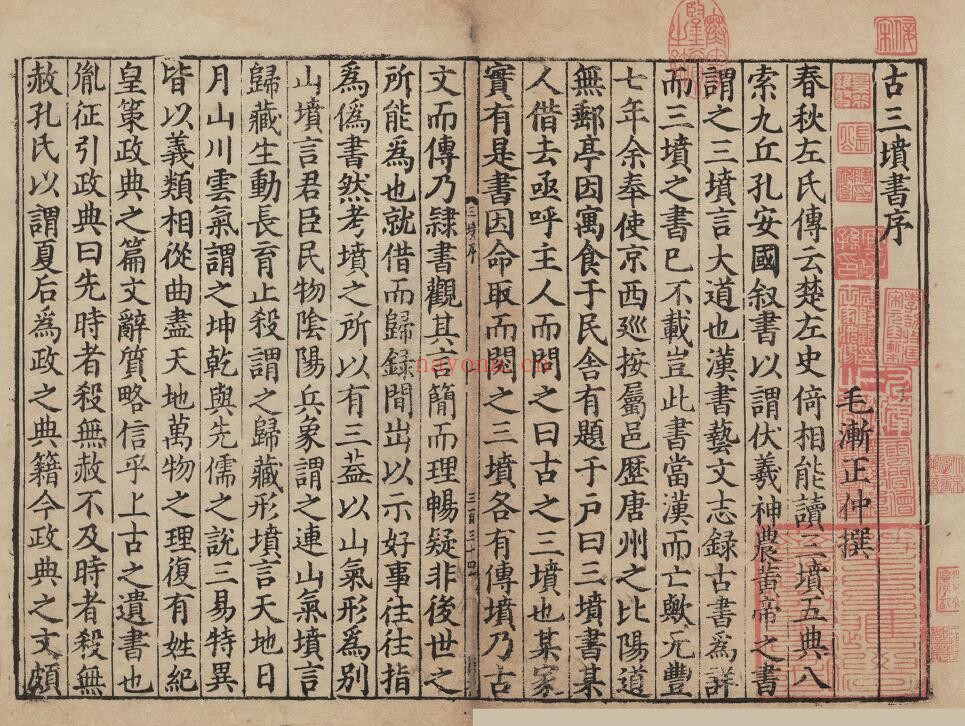 古三墳書序
毛漸正仲撰
春秋左氏傳云楚左史倚相能讀三墳五典八
索九丘孔安國叙書以謂伏羲神農黃帝之書
謂之三墳言大道也漢書藝文志録古書爲詳
而三墳之書已不載豈此書當漢而亡歟元豐
七年余奉使京西廵按屬邑歷唐州之比陽道
無郵亭因寓食于民舍有題于戶曰三墳書某
人借去亟呼主人而問之曰古之三墳也某家
實有是書因命取而閱之三墳各有傳墳乃古
三墳序
三百三十四
文而傳乃隷書觀其言簡而理暢疑非後世之
所能爲也就借而歸録間出以示好事往往指
爲僞書然考墳之所以有三葢以山氣形爲别
山墳言君臣民物陰陽兵象謂之連山氣墳言
歸藏生動長育止殺謂之歸藏形墳言天地日
月山川雲氣謂之坤乾與先儒之說三易特異
皆以義類相從曲盡天地萬物之理復有姓紀
皇策政典之篇文辭質略信乎上古之遺書也
胤征引政典曰先時者殺無赦不及時者殺無
赦孔氏以謂夏后爲政之典籍今政典之文頗
nayona.cn